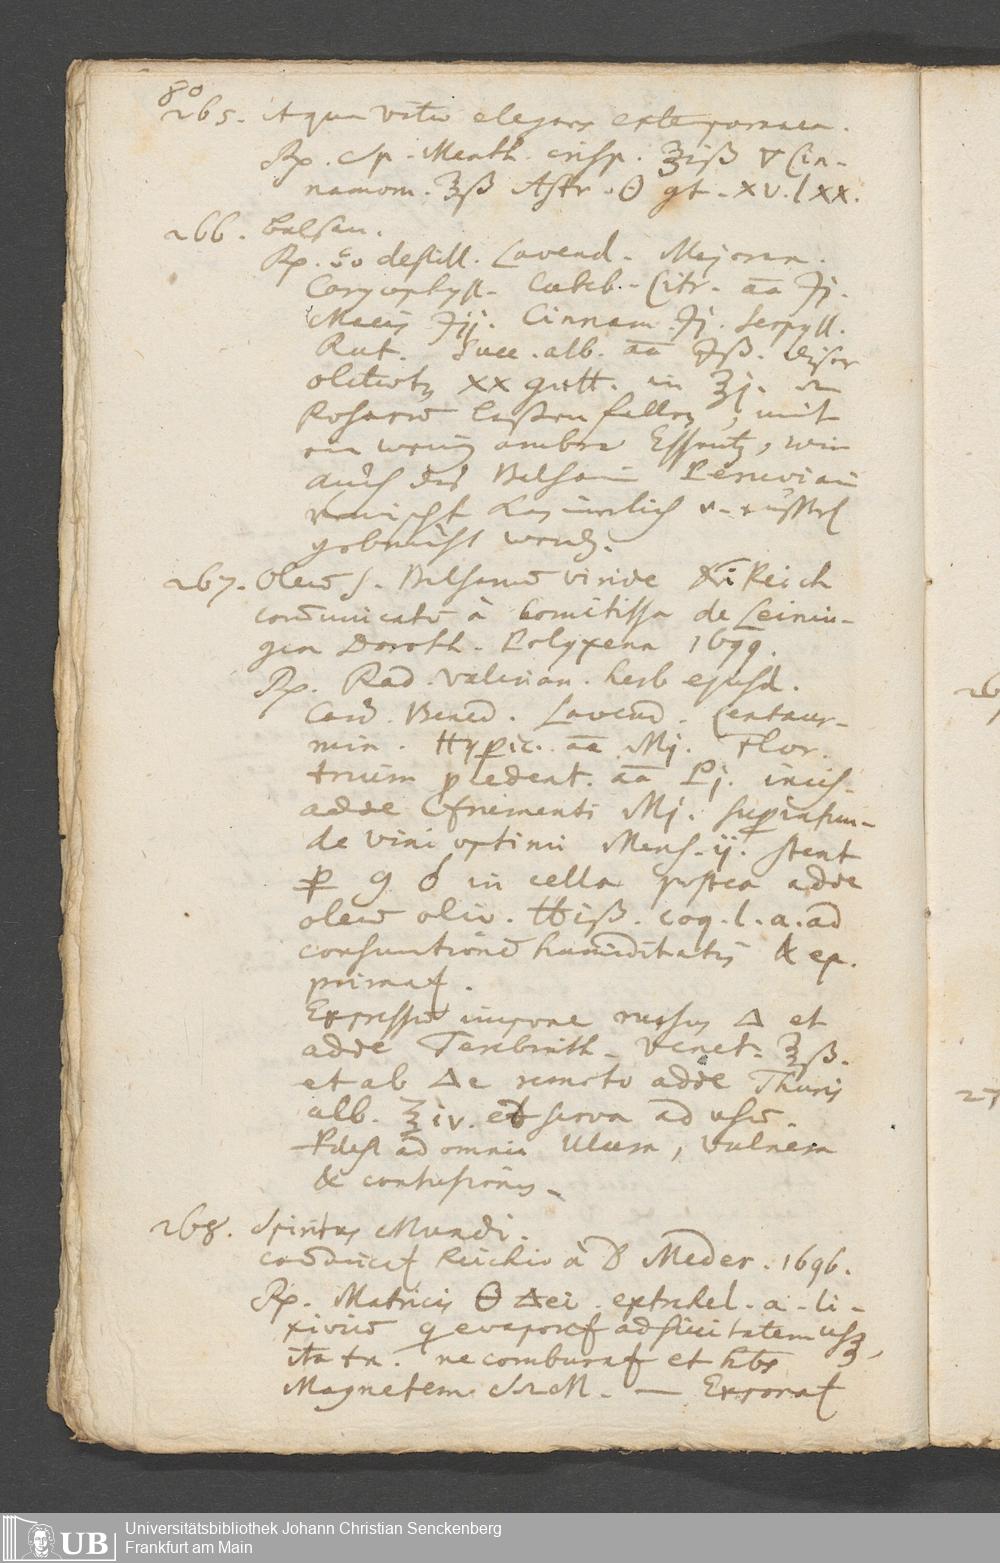 80
265. Aqua vitæ elegans extemporanea.
Rp. Sp. Menth. crisp. ℥iß ▽ Cin-
namom. ℥ß Astr. gt. xv. lxx.
266. Balsam.
Rp. destill. Lavend. Majoran.
Caryophyll. Cubeb. Citr. aa ʒj.
Macis ʒij. Cinnam. ʒj. Serpyll.
Rut. Succ. alb. aa ʒß. dieser
olitäten xx gutt. in ℥j.
Rosarum lassen fallen, mit
ein wenig ambra Essentz, wie
auch des Balsami Peruviani
vermischt kan innerlich v. eusserl
gebraucht werden.
267. Oleum s. Balsamum viride Reich
communicatum à Comitissa de Leinin-
gen Doroth. Polyxena 1699.
Rp. Rad. valerian. herb ejusd.
Card. Bened. Lavend. Centaur-
min. Hyperic. aa Mj. Flor.
trium præcedent. aa Pj. incis.
adde frumenti Mj. superinfun-
de vini optimi Mens. ij. stent
in cella postea adde
oleum oliv. ℔iß. coq. l. a. ad
consumtionem humiditatis & ex-
primat.
Expressum impone rursus △ et
adde Terebinth. Venet. ℥ß.
et ab △e remoto adde Thuris
alb. ℥iv. et serva ad usum.
Pdest ad omnia Ulcera, vulnera
& contusiones.
268. Spiritus Mundi.
communicat Reichio à D Meder. 1696.
Rp. Matricis △ei. extrahe l. a. li-
xivium q evaporet ad siccitatem usq,
ita tn. ne comburat et hbs
Magnetem SrM. — Exponat
Universitätsbibliothek Johann Christian Senckenberg
Frankfurt am Main
UB